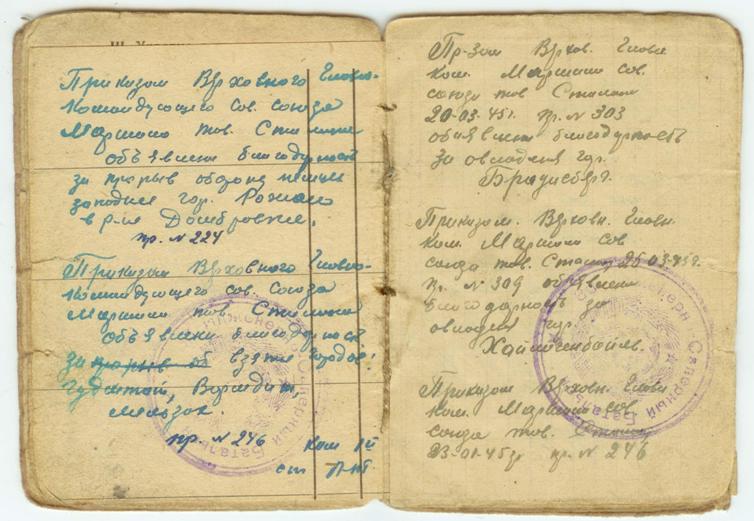 Приказом Верховного Главно-
командующего Сов. союза
Маршала тов. Сталина
объявлена благодарность
за прорыв обороны немцев
западнее гор. Рожан
в р-не Домбровке,
пр. № 224
Приказом Верховного Главно-
командующего сов. Союза
Маршала тов. Сталина
объявлена благодарность
за прорыв об взятие городов:
Гудштат, Вормдит,
Мельзак.
пр. № 246
Ком
Пр-зом Верхов. Главн
ком. Маршала Сов.
союза тов Сталина
20-03.45г. пр. № 303
объявлена благодарность
за овладения гор.
Браунсберг.
Приказом. Верховн. Главн.
ком. Маршала Сов
союза тов. Сталина 26.03.45г.
пр. № 309 объявлена
благодарность за
овладен гор.
Хайлигенбайль.
Приказом Верховн. Главн
ком. Маршала сов
союза тов. Сталина
23-01-45г пр. № 246
Инженерн Саперный Баталь
Инженерн Саперный Баталь